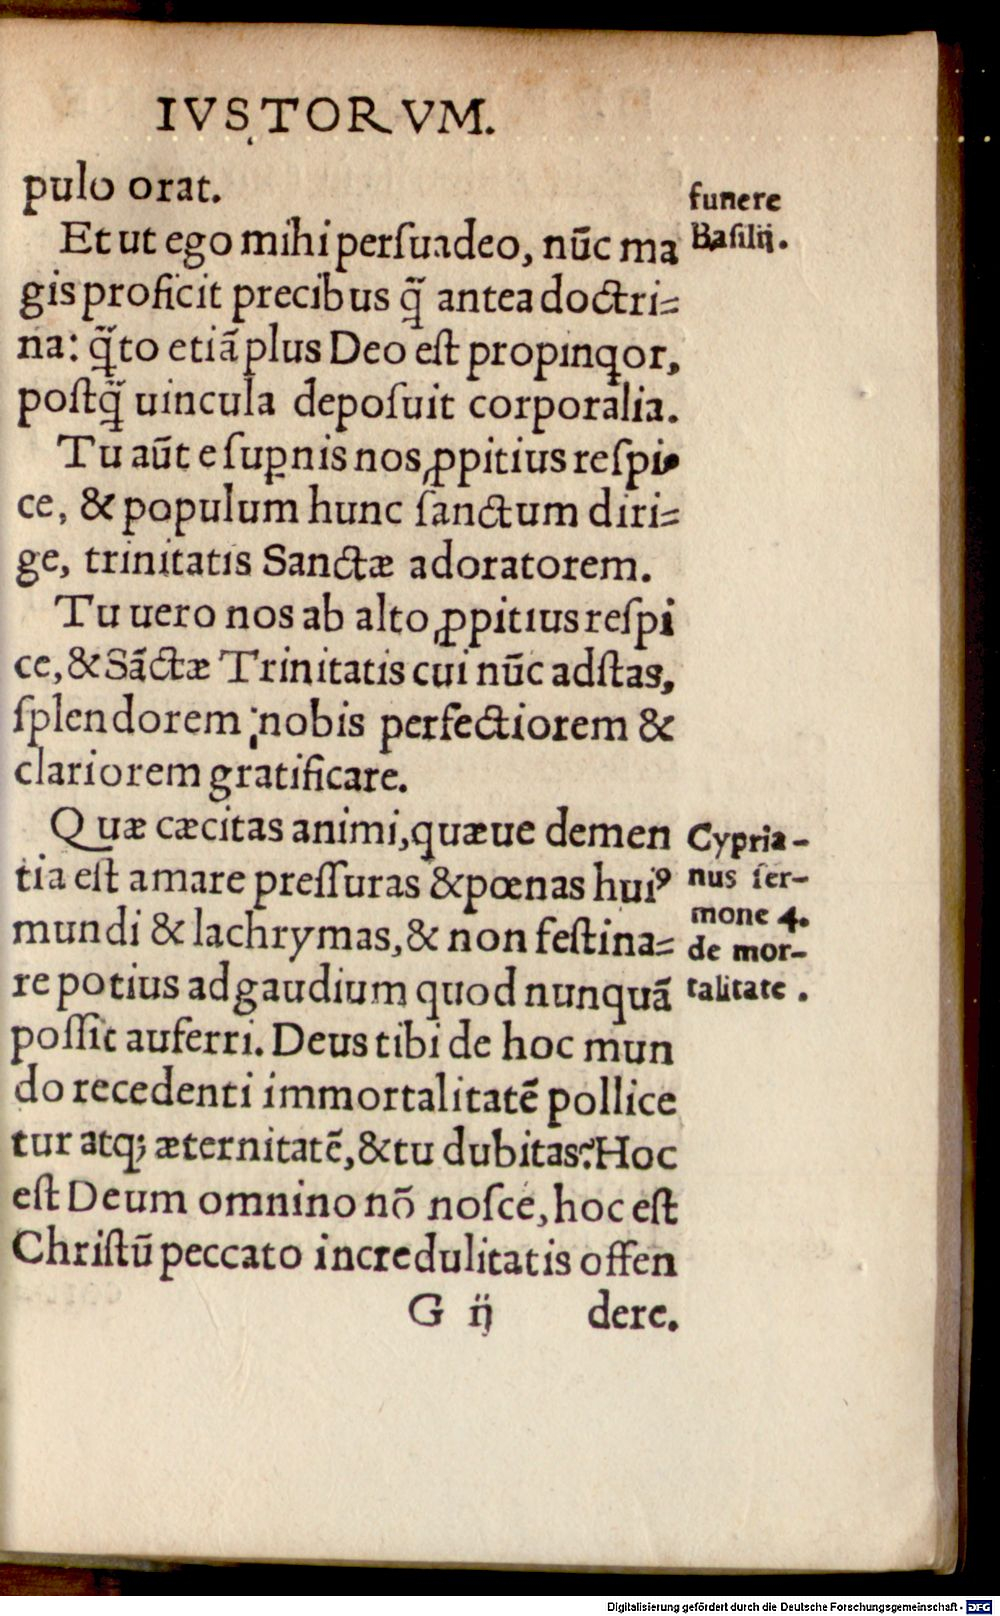 IVSTORVM.
pulo orat.
funere
Basilij.
Et ut ego mihi perſuadeo, nūc ma
gis proficit precibus q̃ antea doctri=
na: q̃to etiā plus Deo eſt propinqor,
poſtq̃ uincula depoſuit corporalia.
Tu aūt e ſuꝑnis nos ꝓpitius reſpi
ce, & populum hunc ſanctum diri=
ge, trinitatis Sanctæ adoratorem.
Tu uero nos ab alto ꝓpitius reſpi
ce, & Sāctæ Trinitatis cui nūc adſtas,
ſplendorem nobis perfectiorem &
clariorem gratificare.
Quæ cæcitas animi, quæue demen
tia eſt amare preſſuras & pœnas huiꝰ
mundi & lachrymas, & non feſtina=
re potius ad gaudium quod nunquā
poſſit auferri. Deus tibi de hoc mun
do recedenti immortalitatē pollice
tur atq; æternitatē, & tu dubitas? Hoc
eſt Deum omnino nō noſce, hoc eſt
Chriſtū peccato incredulitatis offen
Cypria-
nus ſer-
mone 4.
de mor-
talitate.
G ij dere.
Digitalisierung gefördert durch die Deutsche Forschungsgemeinschaft - DFG